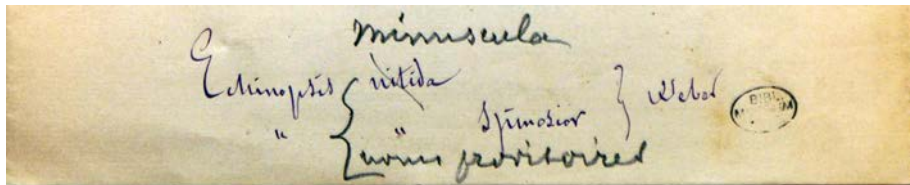 minuscula
Echinopsis { nitida
" { " Spinosior } Weber
noms provisoires
BIBL. MUSEUM